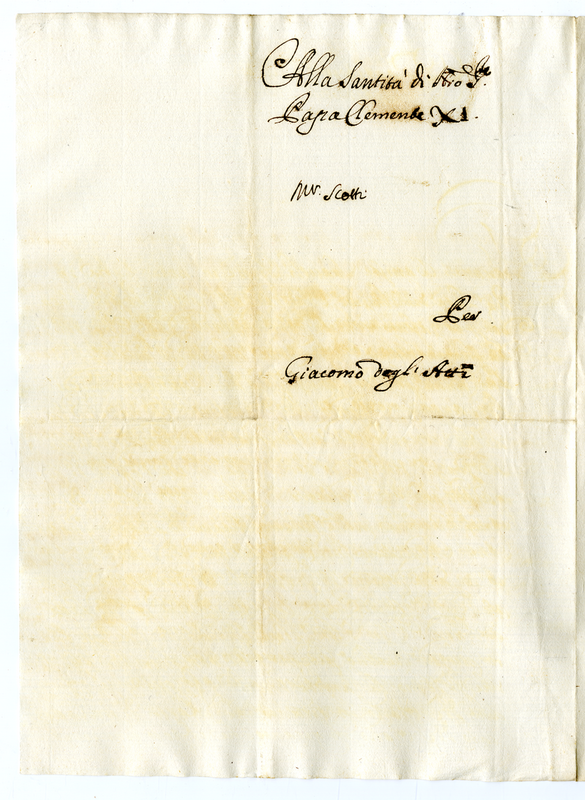 Alla Santità di Nro Sre
Papa Clemente XI.
Mr. Scotti
Per
Giacomo degl'Atti